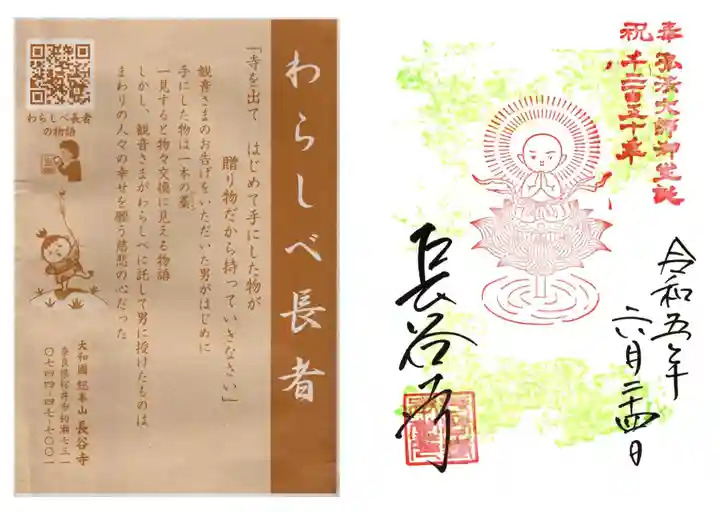 わらしべ長者
「寺を出て はじめて手にした物が
贈り物だから持っていきなさい」
観音さまのお告げをいただいた男がはじめに
手にした物は一本の藁。
一見すると物々交換に見える物語
しかし、観音さまがわらしべに託して男に授けたものは、
まわりの人々の幸せを願う慈悲の心だった
わらしべ長者
の物語
大和國 総本山 長谷寺
奈良県桜井市初瀬七三一
〇七四四-四七-七〇〇一
奉祝
弘法大師御生誕
千二百五十年
令和五年
六月二十四日
長谷寺